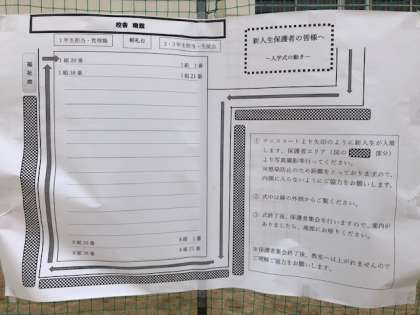 校舎 職館
1年生担当・管理職
朝礼台
2・3年生担当・生徒会
新入生保護者の皆様へ
~入学式の動き~
福祉席
1組20番
1組 1番
1組38番
1組21番
① テニスコートより矢印のように新入生が入場
します。保護者エリア(図の 部分)
より写真撮影を行ってください。
※感染防止のため距離をとっておりますので、
内側に入らないようにご協力をお願いします。
② 式中は線の外側からご覧ください。
③ 式終了後、保護者集会を行いますので、案内が
ありましたら、南館にお帰りください。
※保護者集会終了後、教室へは上がれませんので
ご理解ご協力をお願いします。